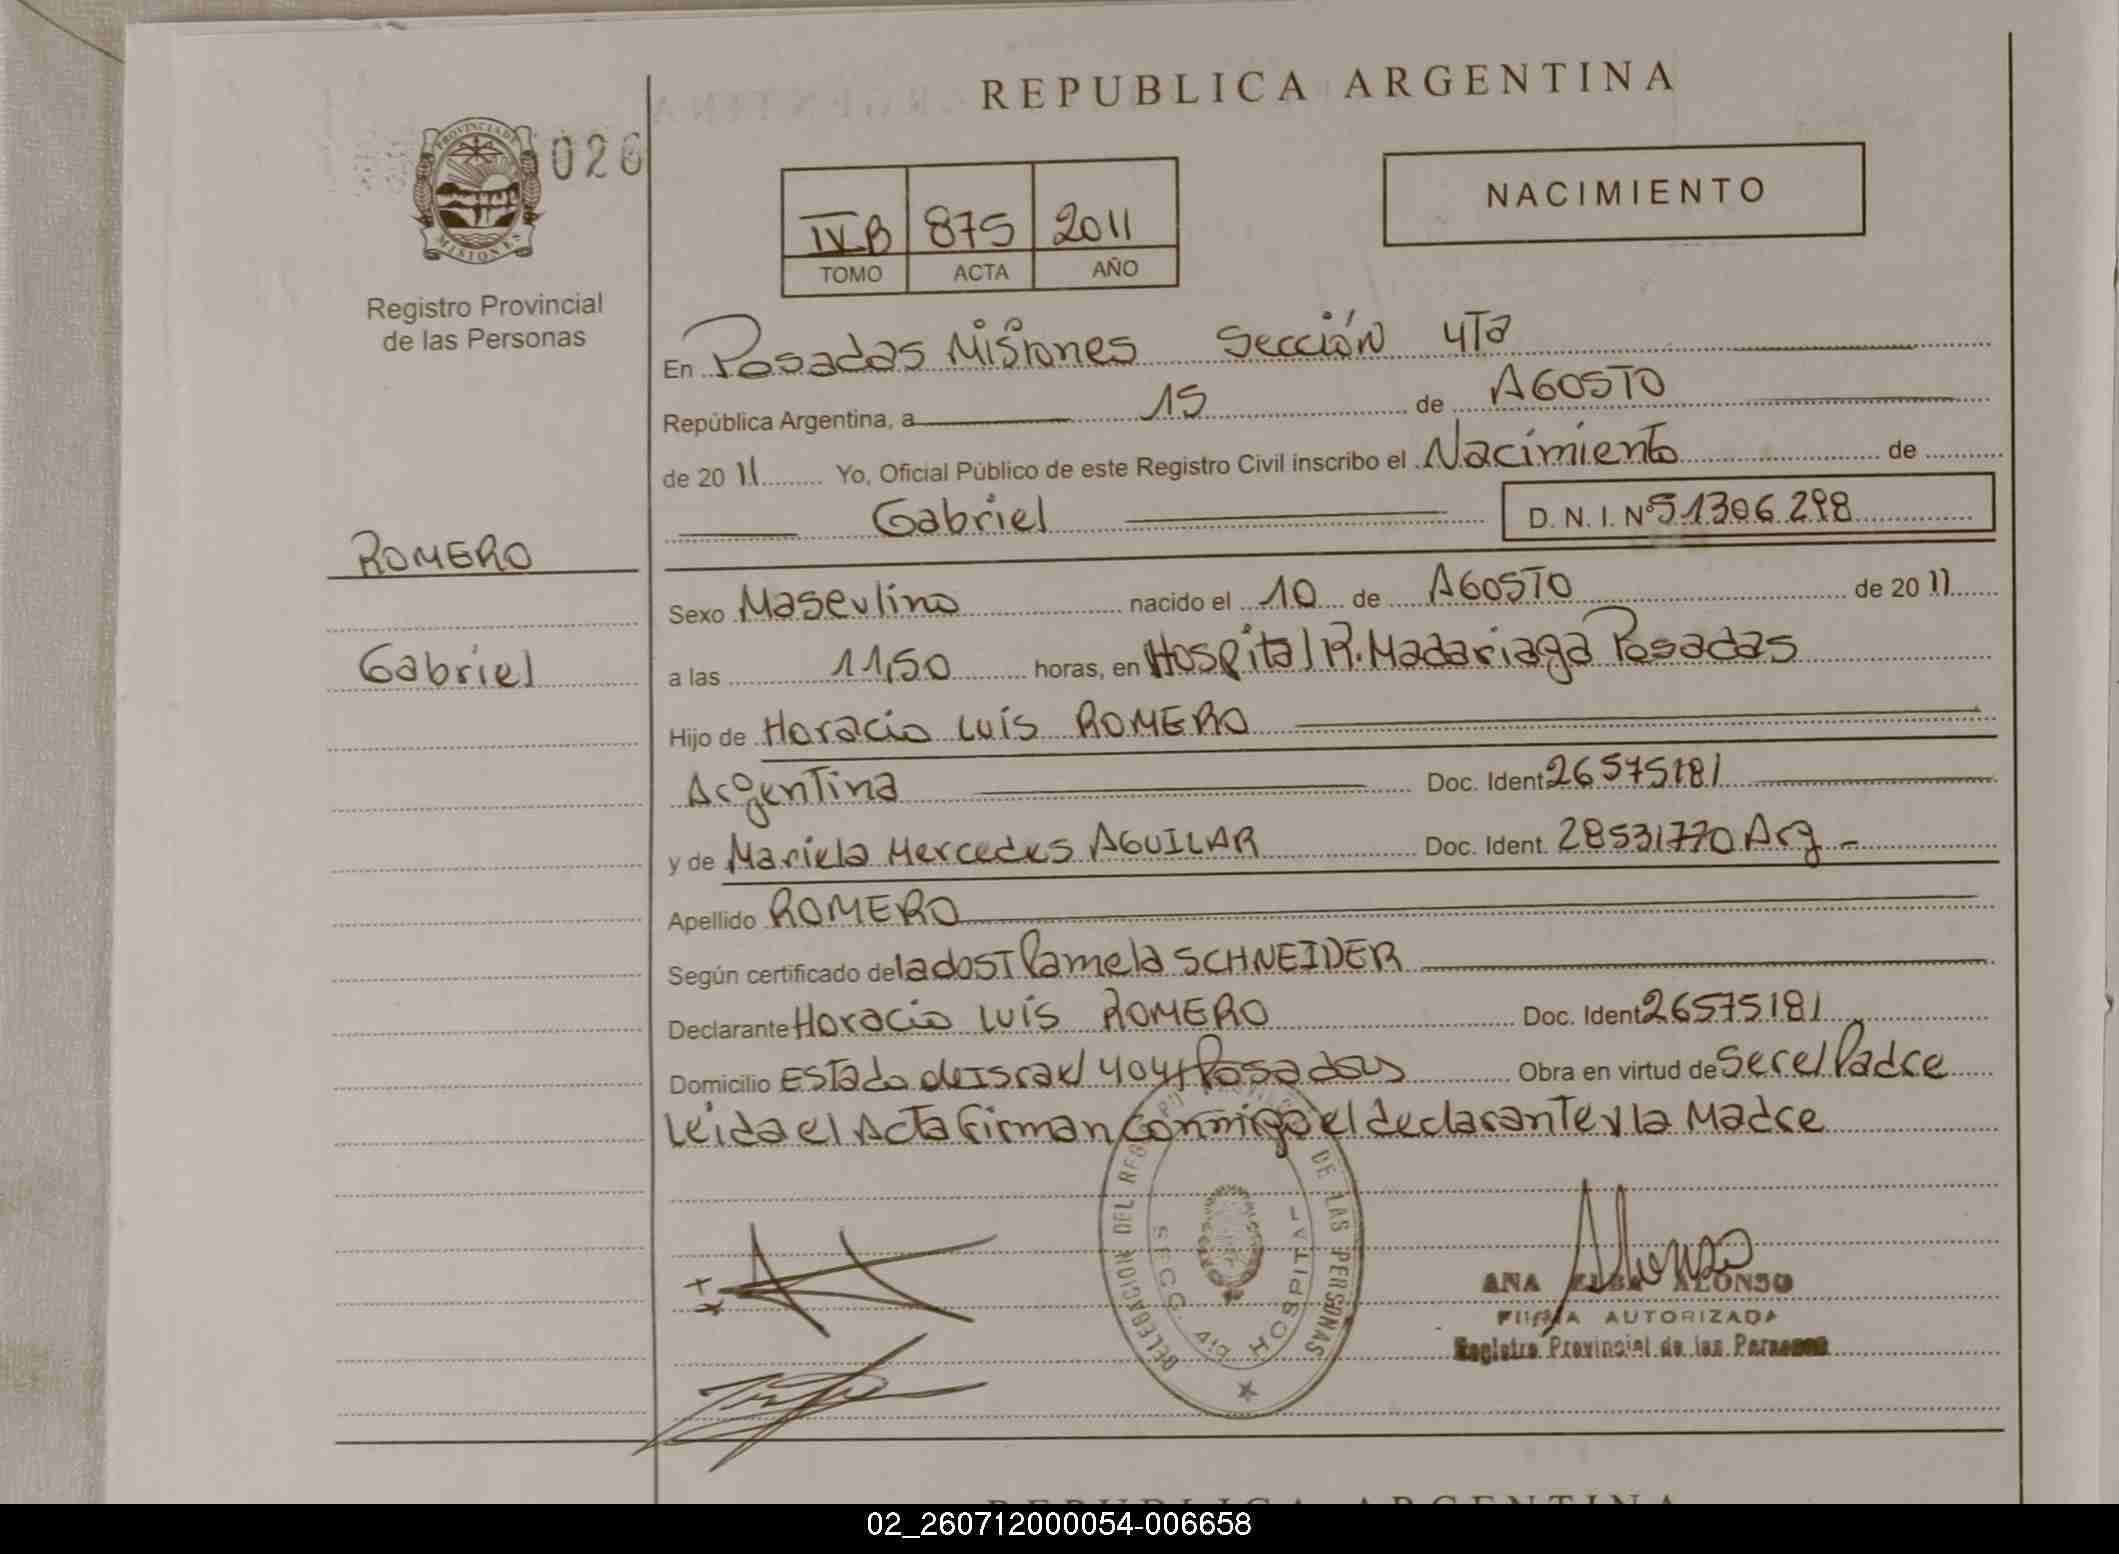 REPUBLICA ARGENTINA
PROVINCIA DE MISIONES
026
NACIMIENTO
IV B 875 2011
TOMO ACTA AÑO
Registro Provincial
de las Personas
En Posadas Misiones Sección 4Ta
República Argentina, a 15 de AGOSTO
de 20 11 Yo, Oficial Público de este Registro Civil inscribo el Nacimiento de
Gabriel D. N. I. Nº 51306.298
ROMERO
Gabriel
Sexo Masculino nacido el 10 de AGOSTO de 20 11
a las 11,50 horas, en Hospital R. Madariaga Posadas
Hijo de Horacio Luis ROMERO
Argentina Doc. Ident 26575181
y de Mariela Mercedes AGUILAR Doc. Ident. 28531770 Arg -
Apellido ROMERO
Según certificado de la dosT Pamela SCHNEIDER
Declarante Horacio Luis ROMERO Doc. Ident 26575181
Domicilio Estado de Israel 4041 Posadas Obra en virtud de Ser el Padre
Leida el Acta Firman Conmigo el declarante y la Madre
DELEGACION DEL REG DE LAS PERSONAS
SECC. 4ta HOSPITAL
ANA ELBA ALONSO
FIRMA AUTORIZADA
Registro Provincial de las Personas
REPUBLICA ARGENTINA
02_260712000054-006658